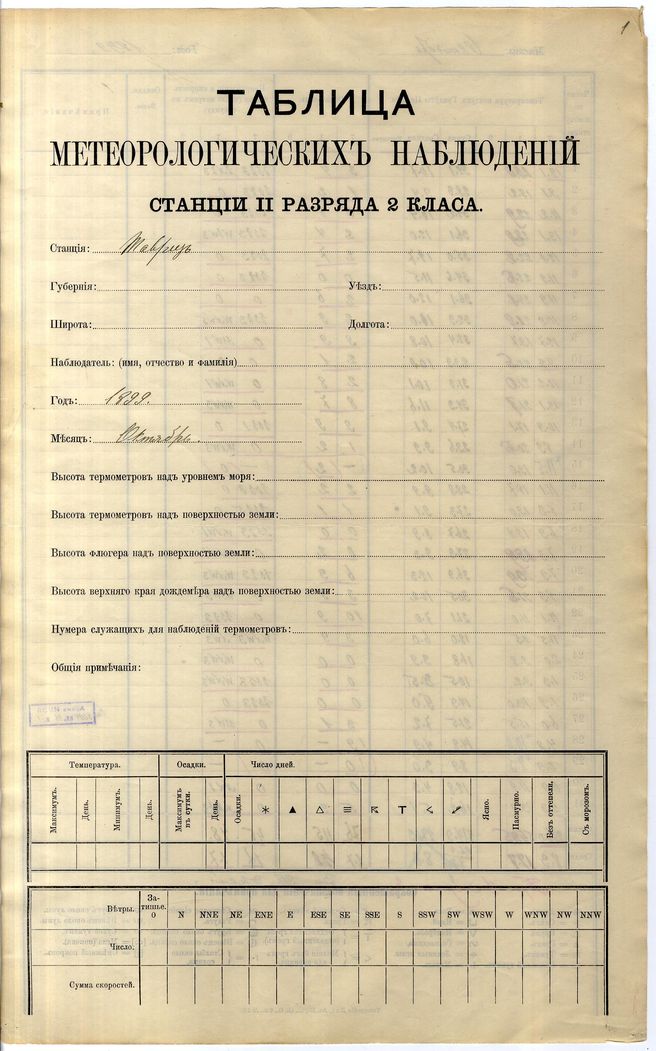 1
ТАБЛИЦА
МЕТЕОРОЛОГИЧЕСКИХЪ НАБЛЮДЕНІЙ
СТАНЦІИ II РАЗРЯДА 2 КЛАСА.
Станція: Тавризъ
Губернія: Уѣздъ:
Широта: Долгота:
Наблюдатель: (имя, отчество и фамилія)
Годъ: 1899.
Мѣсяцъ: Октябрь.
Высота термометровъ надъ уровнемъ моря:
Высота термометровъ надъ поверхностью земли:
Высота флюгера надъ поверхностью земли:
Высота верхняго края дождемѣра надъ поверхностью земли:
Нумера служащихъ для наблюденій термометровъ:
Общія примѣчанія:
Температура. Осадки. Число дней.
Максимумъ. День. Минимумъ. День. Максимумъ въ сутки. День. Осадки. Ясно. Пасмурно. Безъ оттепели. Съ морозомъ.
Вѣтры. Затишье. 0 N NNE NE ENE E ESE SE SSE S SSW SW WSW W WNW NW NNW
Число.
Сумма скоростей.